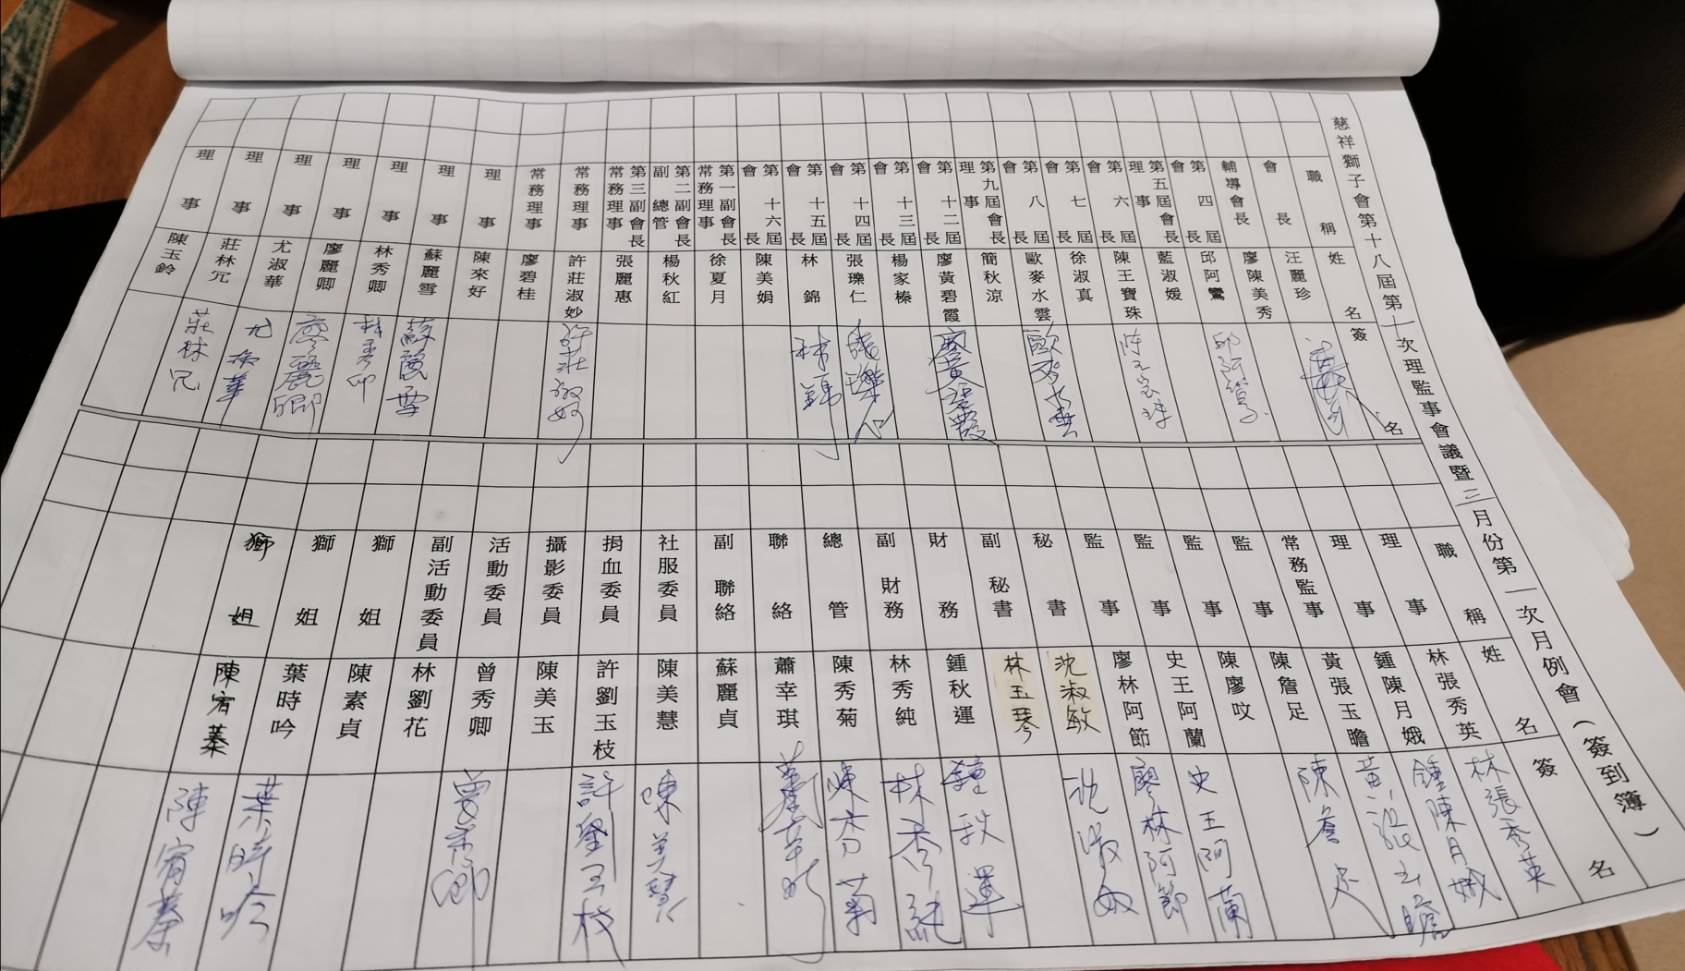 慈祥獅子會第十八屆第十次理監事會議暨三月份第一次月例會(簽到簿)
職稱 姓名 簽名
會長 汪麗珍
輔導會長 廖陳美秀
第四屆會長 邱阿鸞 邱阿鸞
第五屆會長理事 藍淑媛
第六屆會長 陳王寶珠 陳王寶珠
第七屆會長 徐淑真
第八屆會長 歐麥水雲 歐麥水雲
第九屆會長理事 簡秋涼
第十二屆會長 廖黃碧霞 廖黃碧霞
第十三屆會長 楊家榛
第十四屆會長 張瓅仁 張瓅仁
第十五屆會長 林錦 林錦
第十六屆會長 陳美娟
第一副會長常務理事 徐夏月
第二副會長副總管 楊秋紅
第三副會長常務理事 張麗惠
常務理事 許莊淑妙 許莊淑妙
常務理事 廖碧桂
理事 陳來好
理事 蘇麗雪 蘇麗雪
理事 林秀卿 林秀卿
理事 廖麗卿 廖麗卿
理事 尤淑華 尤淑華
理事 莊林冗 莊林冗
理事 陳玉鈴
職稱 姓名 簽名
理事 林張秀英 林張秀英
理事 鍾陳月娥 鍾陳月娥
理事 黃張玉瞻 黃張玉瞻
常務監事 陳詹足 陳詹足
監事 陳廖呅
監事 史王阿蘭 史王阿蘭
監事 廖林阿節 廖林阿節
監事
秘書 沈淑敏 沈淑敏
副秘書 林玉琴
財務 鍾秋運 鍾秋運
副財務 林秀純 林秀純
總管 陳秀菊 陳秀菊
聯絡 蕭幸琪 蕭幸琪
副聯絡 蘇麗貞
社服委員 陳美慧 陳美慧
捐血委員 許劉玉枝 許劉玉枝
攝影委員 陳美玉
活動委員 曾秀卿 曾秀卿
副活動委員 林劉花
獅姐 陳素貞
獅姐 葉時吟 葉時吟
獅姐 陳宥蓁 陳宥蓁